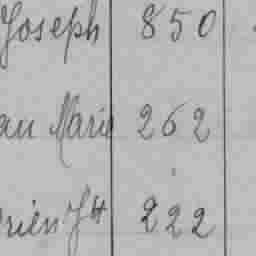 Joseph 850
au Marie 262
rien Jh 222